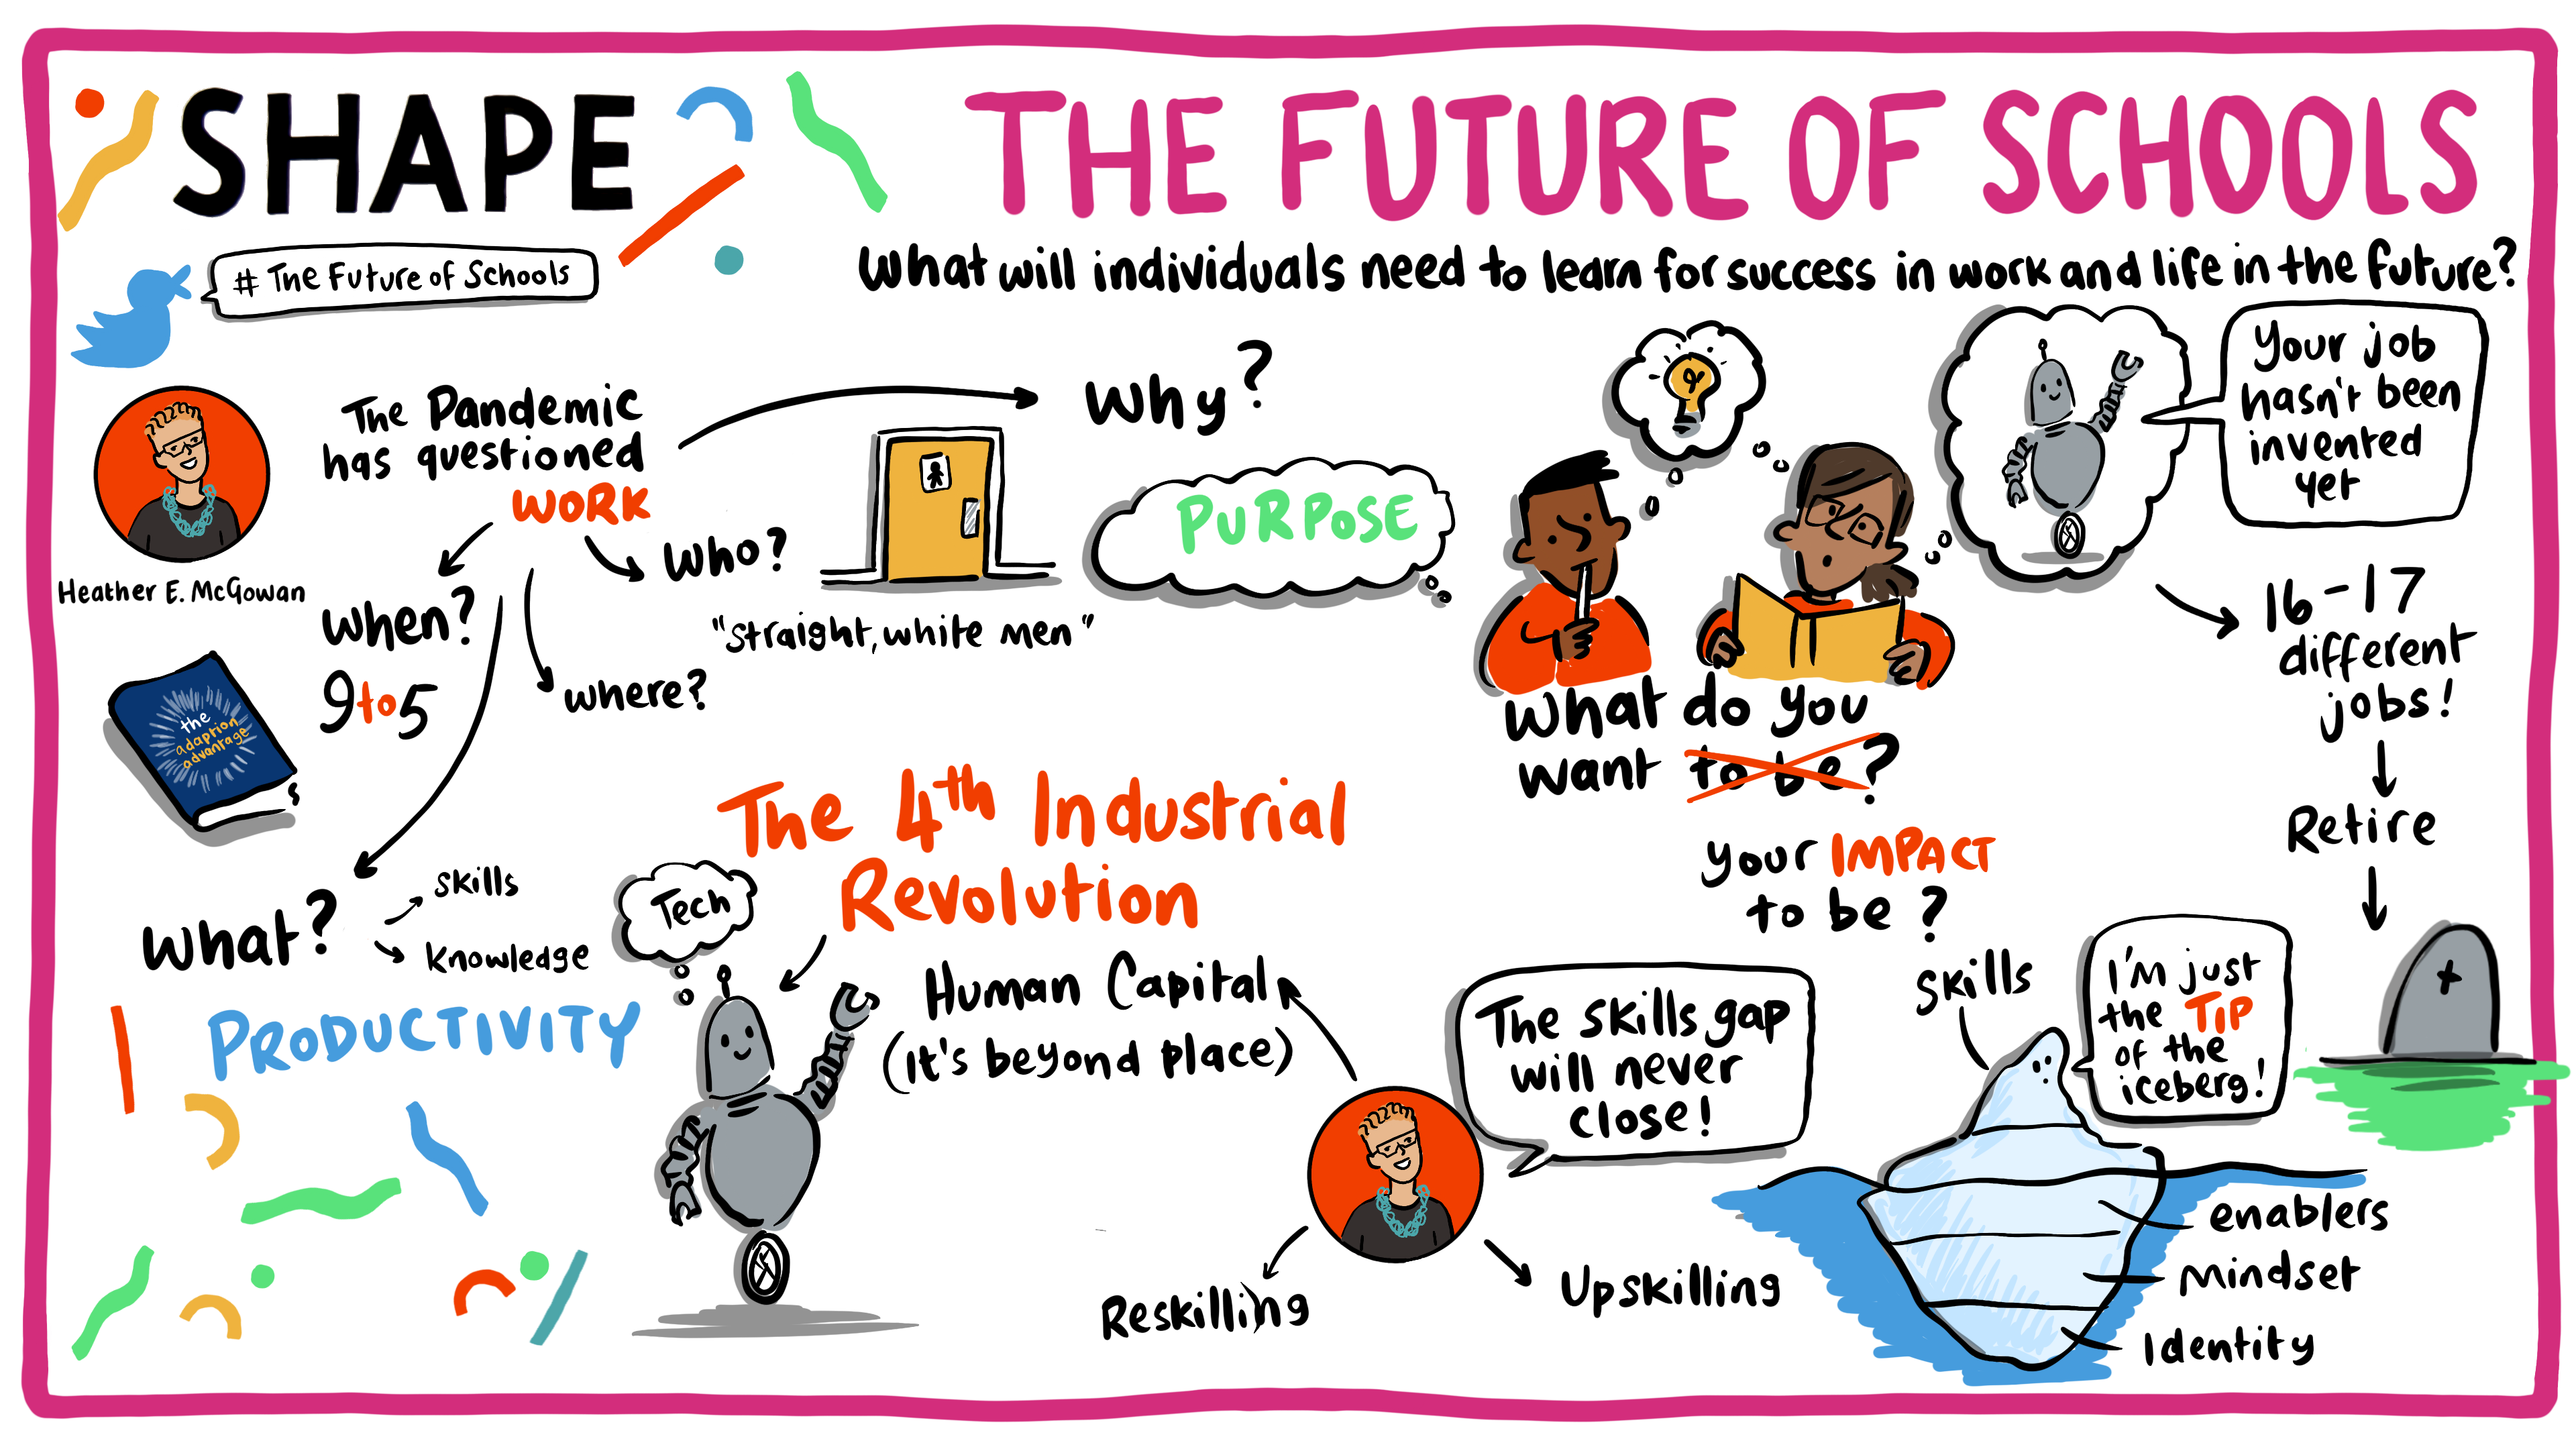 SHAPE
THE FUTURE OF SCHOOLS
# The Future of Schools
What will individuals need to learn for success in work and life in the future?
Heather E. McGowan
the
adaption
advantage
The Pandemic
has questioned
WORK
Why?
Who?
"straight, white men"
When?
9 to 5
where?
What?
skills
knowledge
PRODUCTIVITY
PURPOSE
What do you
want to be?
your IMPACT
to be?
Your job
hasn't been
invented
yet
16-17
different
jobs!
Retire
The 4th Industrial
Revolution
Tech
Human Capital
(It's beyond place)
The skills gap
will never
close!
Reskilling
Upskilling
skills
I'm just
the TIP
of the
iceberg!
enablers
mindset
Identity